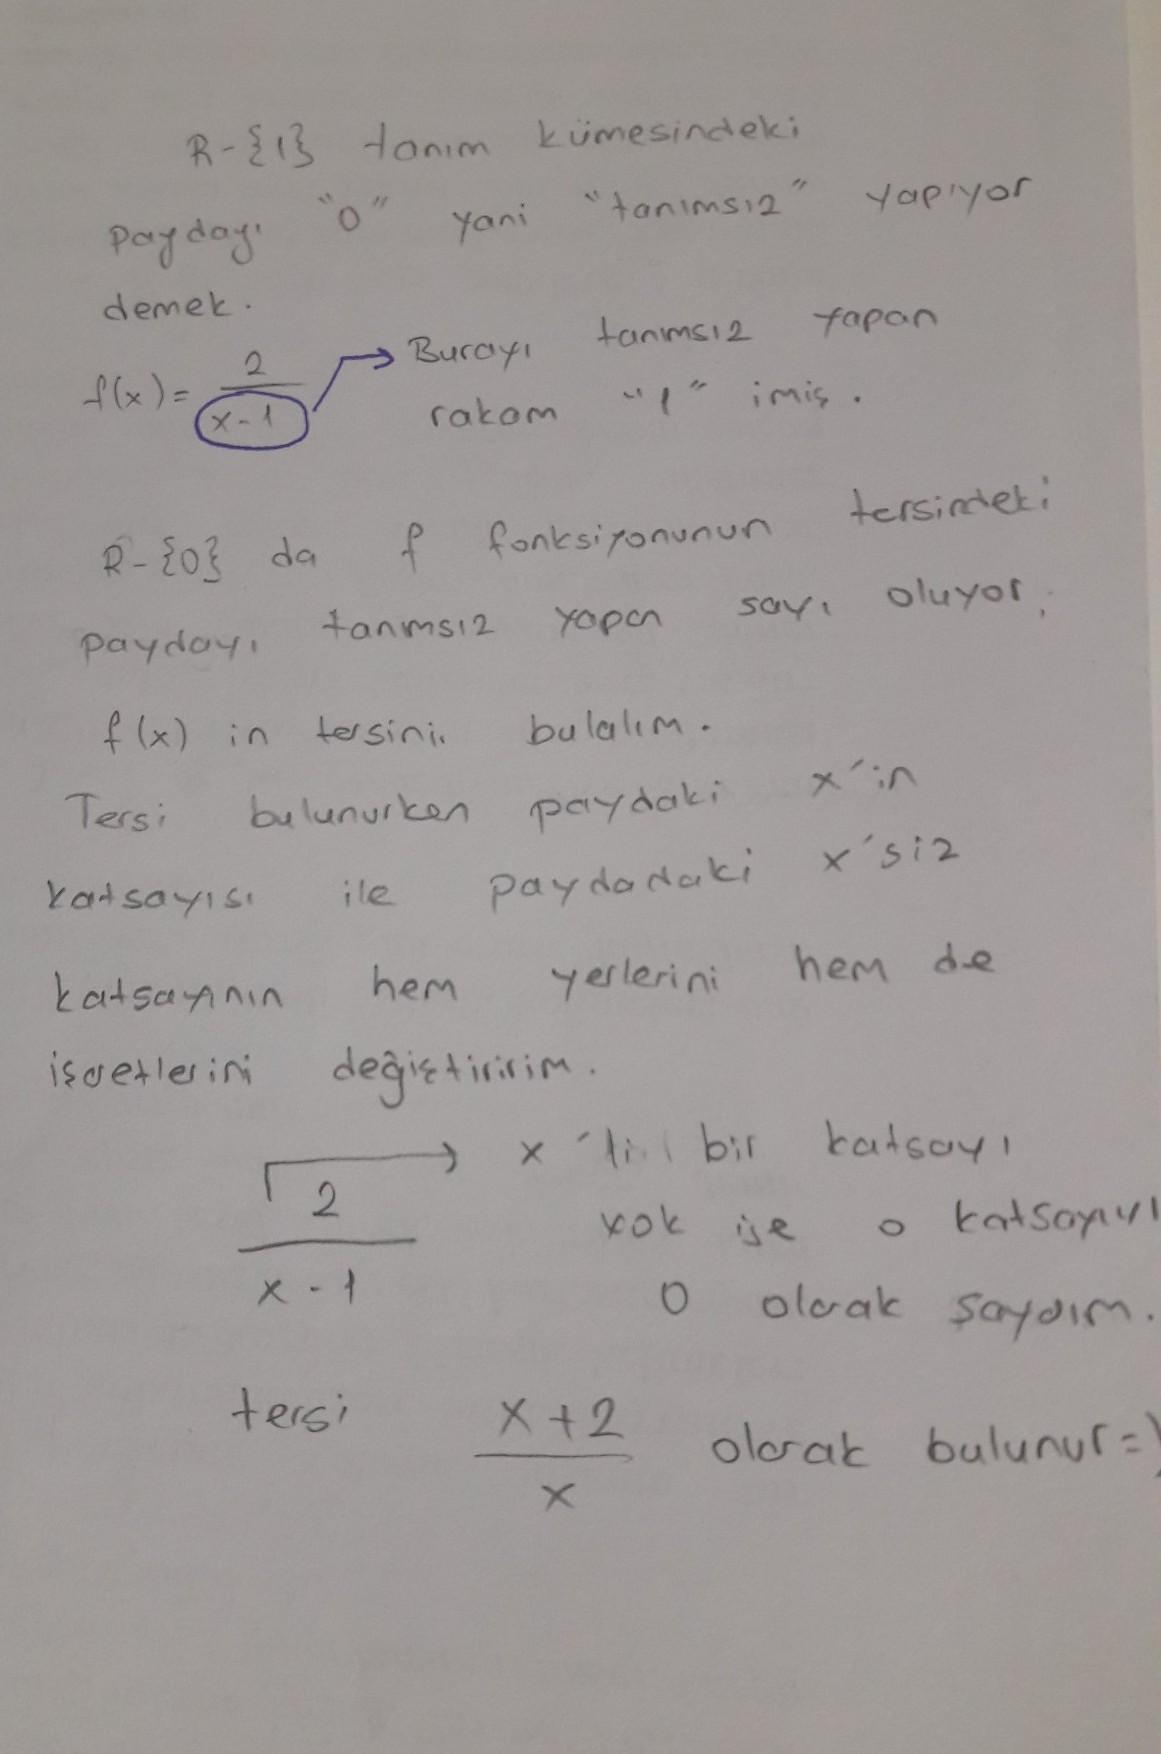 R-{1} tanım kümesindeki
paydayı "0" yani "tanımsız" yapıyor
demek.
f(x)= 2/(x-1) → Burayı tanımsız yapan
rakam "1" imiş.
R-{0} da f fonksiyonunun tersindeki
paydayı tanımsız yapan sayı oluyor.
f(x) in tersini bulalım.
Tersi bulunurken paydaki x'in
katsayısı ile paydadaki x'siz
katsayının hem yerlerini hem de
işaretlerini değiştiririm.
2/(x-1) → x'li bir katsayı
yok ise o katsayıyı
0 olarak saydım.
tersi (x+2)/x olarak bulunur=)